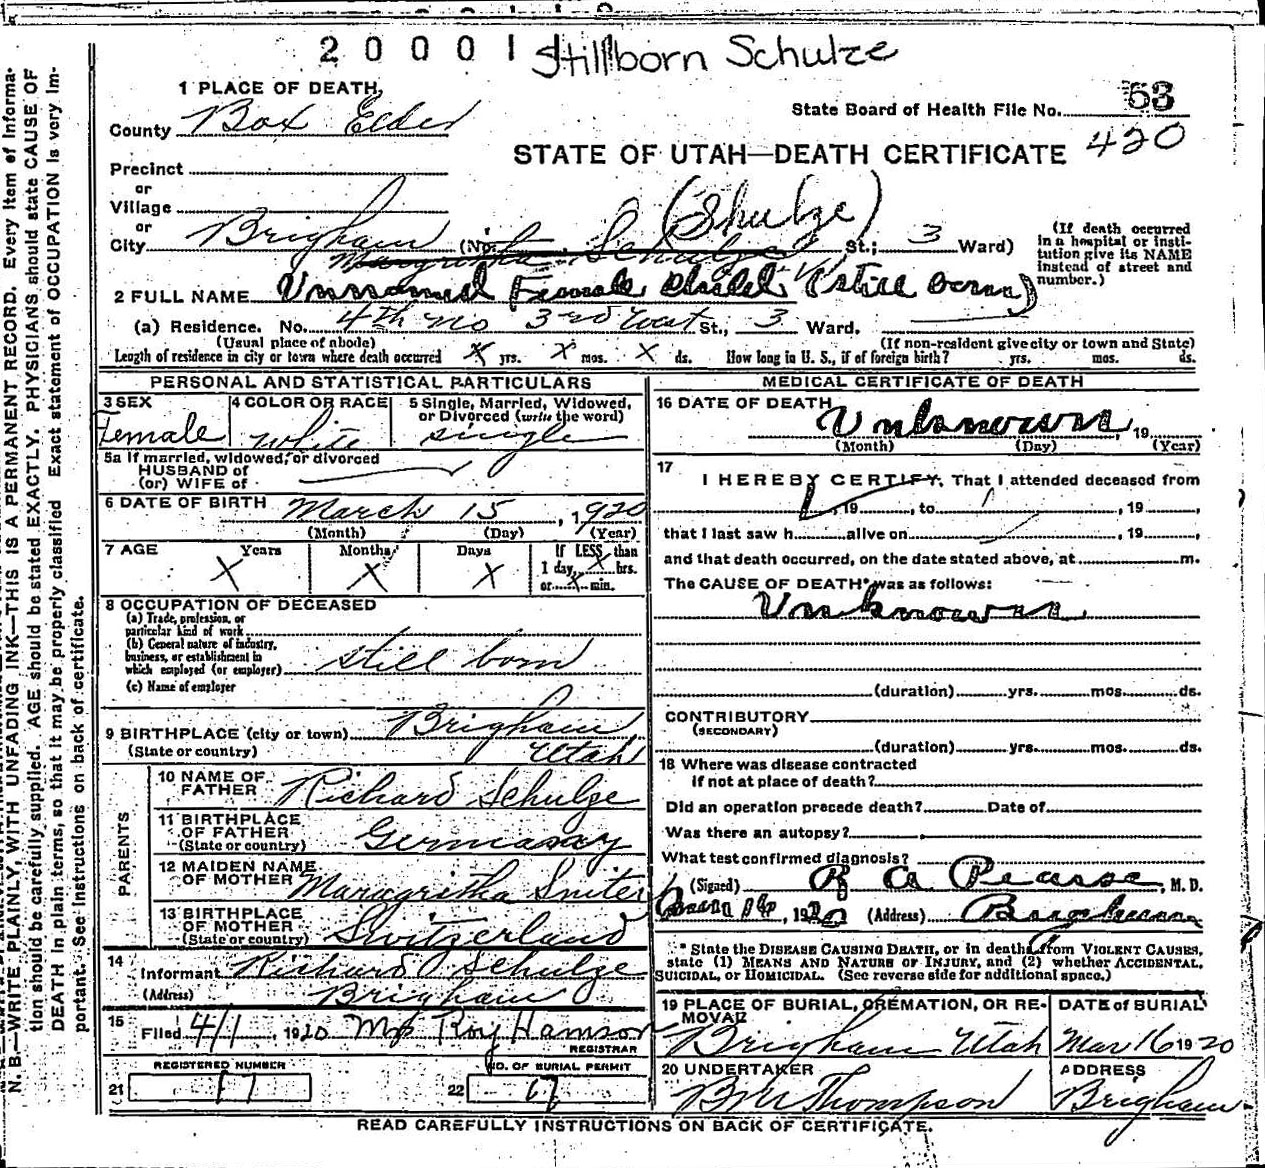 20001 Stillborn Schulze
1 PLACE OF DEATH,
County Box Elder
State Board of Health File No. 53
STATE OF UTAH—DEATH CERTIFICATE 420
Precinct
or
Village
or
(Shulze)
City Brigham (No. , St.; 3 Ward)
(If death occurred in a hospital or institution give its NAME instead of street and number.)
Margritha Schulze
2 FULL NAME Unnamed Female child (still born)
(a) Residence. No. 4th no 3rd West St., 3 Ward.
(Usual place of abode) (If non-resident give city or town and State)
Length of residence in city or town where death occurred X yrs. X mos. X ds. How long in U. S., if of foreign birth? yrs. mos. ds.
PERSONAL AND STATISTICAL PARTICULARS
3 SEX 4 COLOR OR RACE 5 Single, Married, Widowed, or Divorced (write the word)
Female white single
5a If married, widowed, or divorced
HUSBAND of
(or) WIFE of
6 DATE OF BIRTH March 15, 1920
(Month) (Day) (Year)
7 AGE Years Months Days If LESS than
X X X 1 day, X hrs.
or X min.
8 OCCUPATION OF DECEASED
(a) Trade, profession, or
particular kind of work
(b) General nature of industry,
business, or establishment in
which employed (or employer) still born
(c) Name of employer
9 BIRTHPLACE (city or town) Brigham
(State or country) Utah
PARENTS
10 NAME OF FATHER Richard Schulze
11 BIRTHPLACE OF FATHER (State or country) Germany
12 MAIDEN NAME OF MOTHER Maragritha Sniter
13 BIRTHPLACE OF MOTHER (State or country) Switzerland
14 Informant Richard Schulze
(Address) Brigham
15 Filed 4/1, 1920 Mrs Roy Hamson
REGISTRAR
REGISTERED NUMBER NO. OF BURIAL PERMIT
21 17 22 67
MEDICAL CERTIFICATE OF DEATH
16 DATE OF DEATH Unknown, 19
(Month) (Day) (Year)
17
I HEREBY CERTIFY, That I attended deceased from
, 19 , to , 19 ,
that I last saw h alive on , 19 ,
and that death occurred, on the date stated above, at m.
The CAUSE OF DEATH* was as follows:
Unknown
(duration) yrs. mos. ds.
CONTRIBUTORY
(SECONDARY)
(duration) yrs. mos. ds.
18 Where was disease contracted
if not at place of death?
Did an operation precede death? Date of
Was there an autopsy?
What test confirmed diagnosis?
(Signed) R A Pearse, M. D.
, 1920 (Address) Brigham
* State the DISEASE CAUSING DEATH, or in deaths from VIOLENT CAUSES,
state (1) MEANS AND NATURE OF INJURY, and (2) whether ACCIDENTAL,
SUICIDAL, or HOMICIDAL. (See reverse side for additional space.)
19 PLACE OF BURIAL, CREMATION, OR REMOVAL DATE of BURIAL
Brigham Utah Mar 16 1920
20 UNDERTAKER ADDRESS
B M Thompson Brigham
READ CAREFULLY INSTRUCTIONS ON BACK OF CERTIFICATE.
N. B.—WRITE PLAINLY, WITH UNFADING INK—THIS IS A PERMANENT RECORD. Every item of Informa-
tion should be carefully supplied. AGE should be stated EXACTLY. PHYSICIANS should state CAUSE OF
DEATH in plain terms, so that it may be properly classified Exact statement of OCCUPATION is very im-
portant. See Instructions on back of certificate.